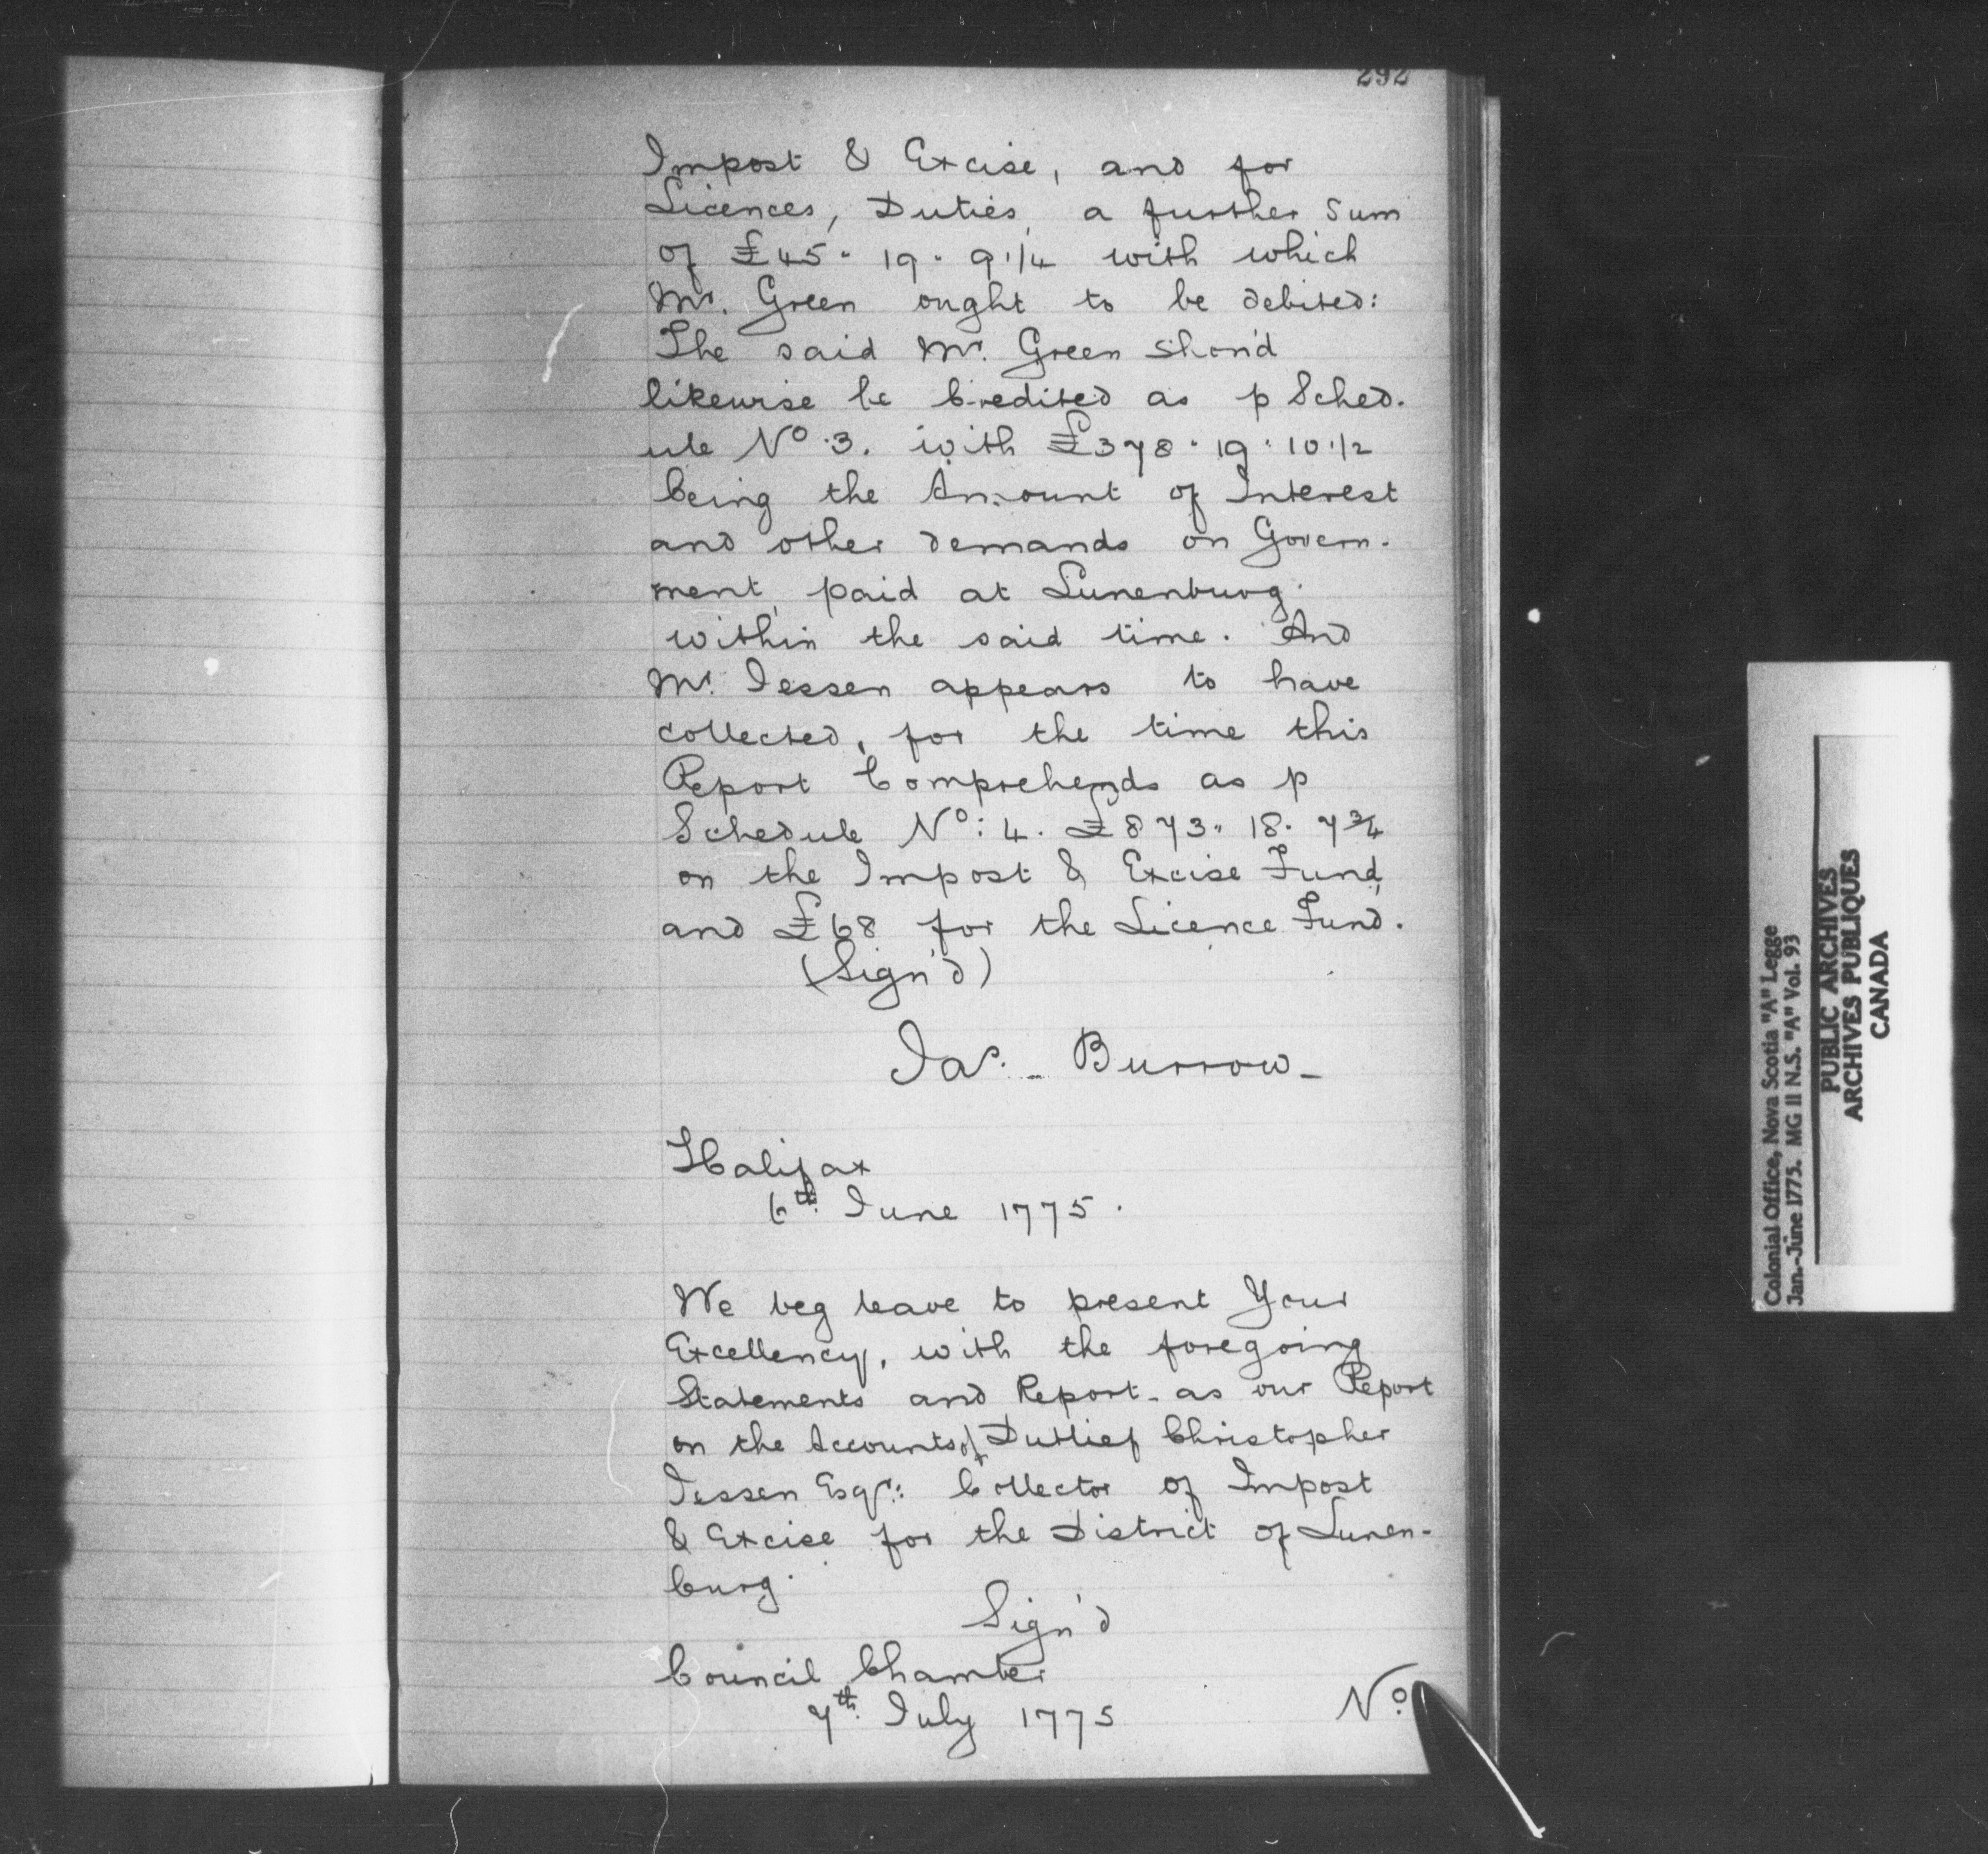 292
Impost & Excise, and for
Licences, Duties, a further Sum
of £45 " 19 " 9 1/4 with which
Mr. Green ought to be debited:
The said Mr. Green shou'd
likewise be Credited as p Sched-
ule No. 3. with £378 " 19 " 10 1/2
being the Amount of Interest
and other demands on Govern-
ment, paid at Lunenburg
within the said time. And
Mr. Jessen appears to have
collected, for the time this
Report Comprehends as p
Schedule No: 4. £873 " 18 " 7 3/4
on the Impost & Excise Fund,
and £68 for the Licence Fund.
(Sign'd)
Jas. - Burrow -
Halifax
6th. June 1775.
We beg leave to present Your
Excellency, with the foregoing
Statements and Report - as our Report
on the Accounts of Dutlief Christopher
Jessen Esqr.: Collector of Impost
& Excise for the District of Lunen-
burg.
Sign'd
Council Chamber
7th. July 1775
No.
Colonial Office, Nova Scotia "A" Legge
Jan.-June 1775. MG 11 N.S. "A" Vol. 93
PUBLIC ARCHIVES
ARCHIVES PUBLIQUES
CANADA